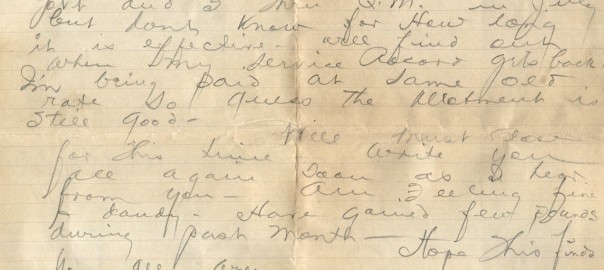 but dont know for How long
it is effective - will find out
when my Service Record gets back.
I'm being paid at same old
rate so guess the Allotment is
still good -
Well must close
for this time. Write you
all again soon as I hear
from you - Am feeling fine
& dandy - Have gained few pounds
during past month - Hope this finds